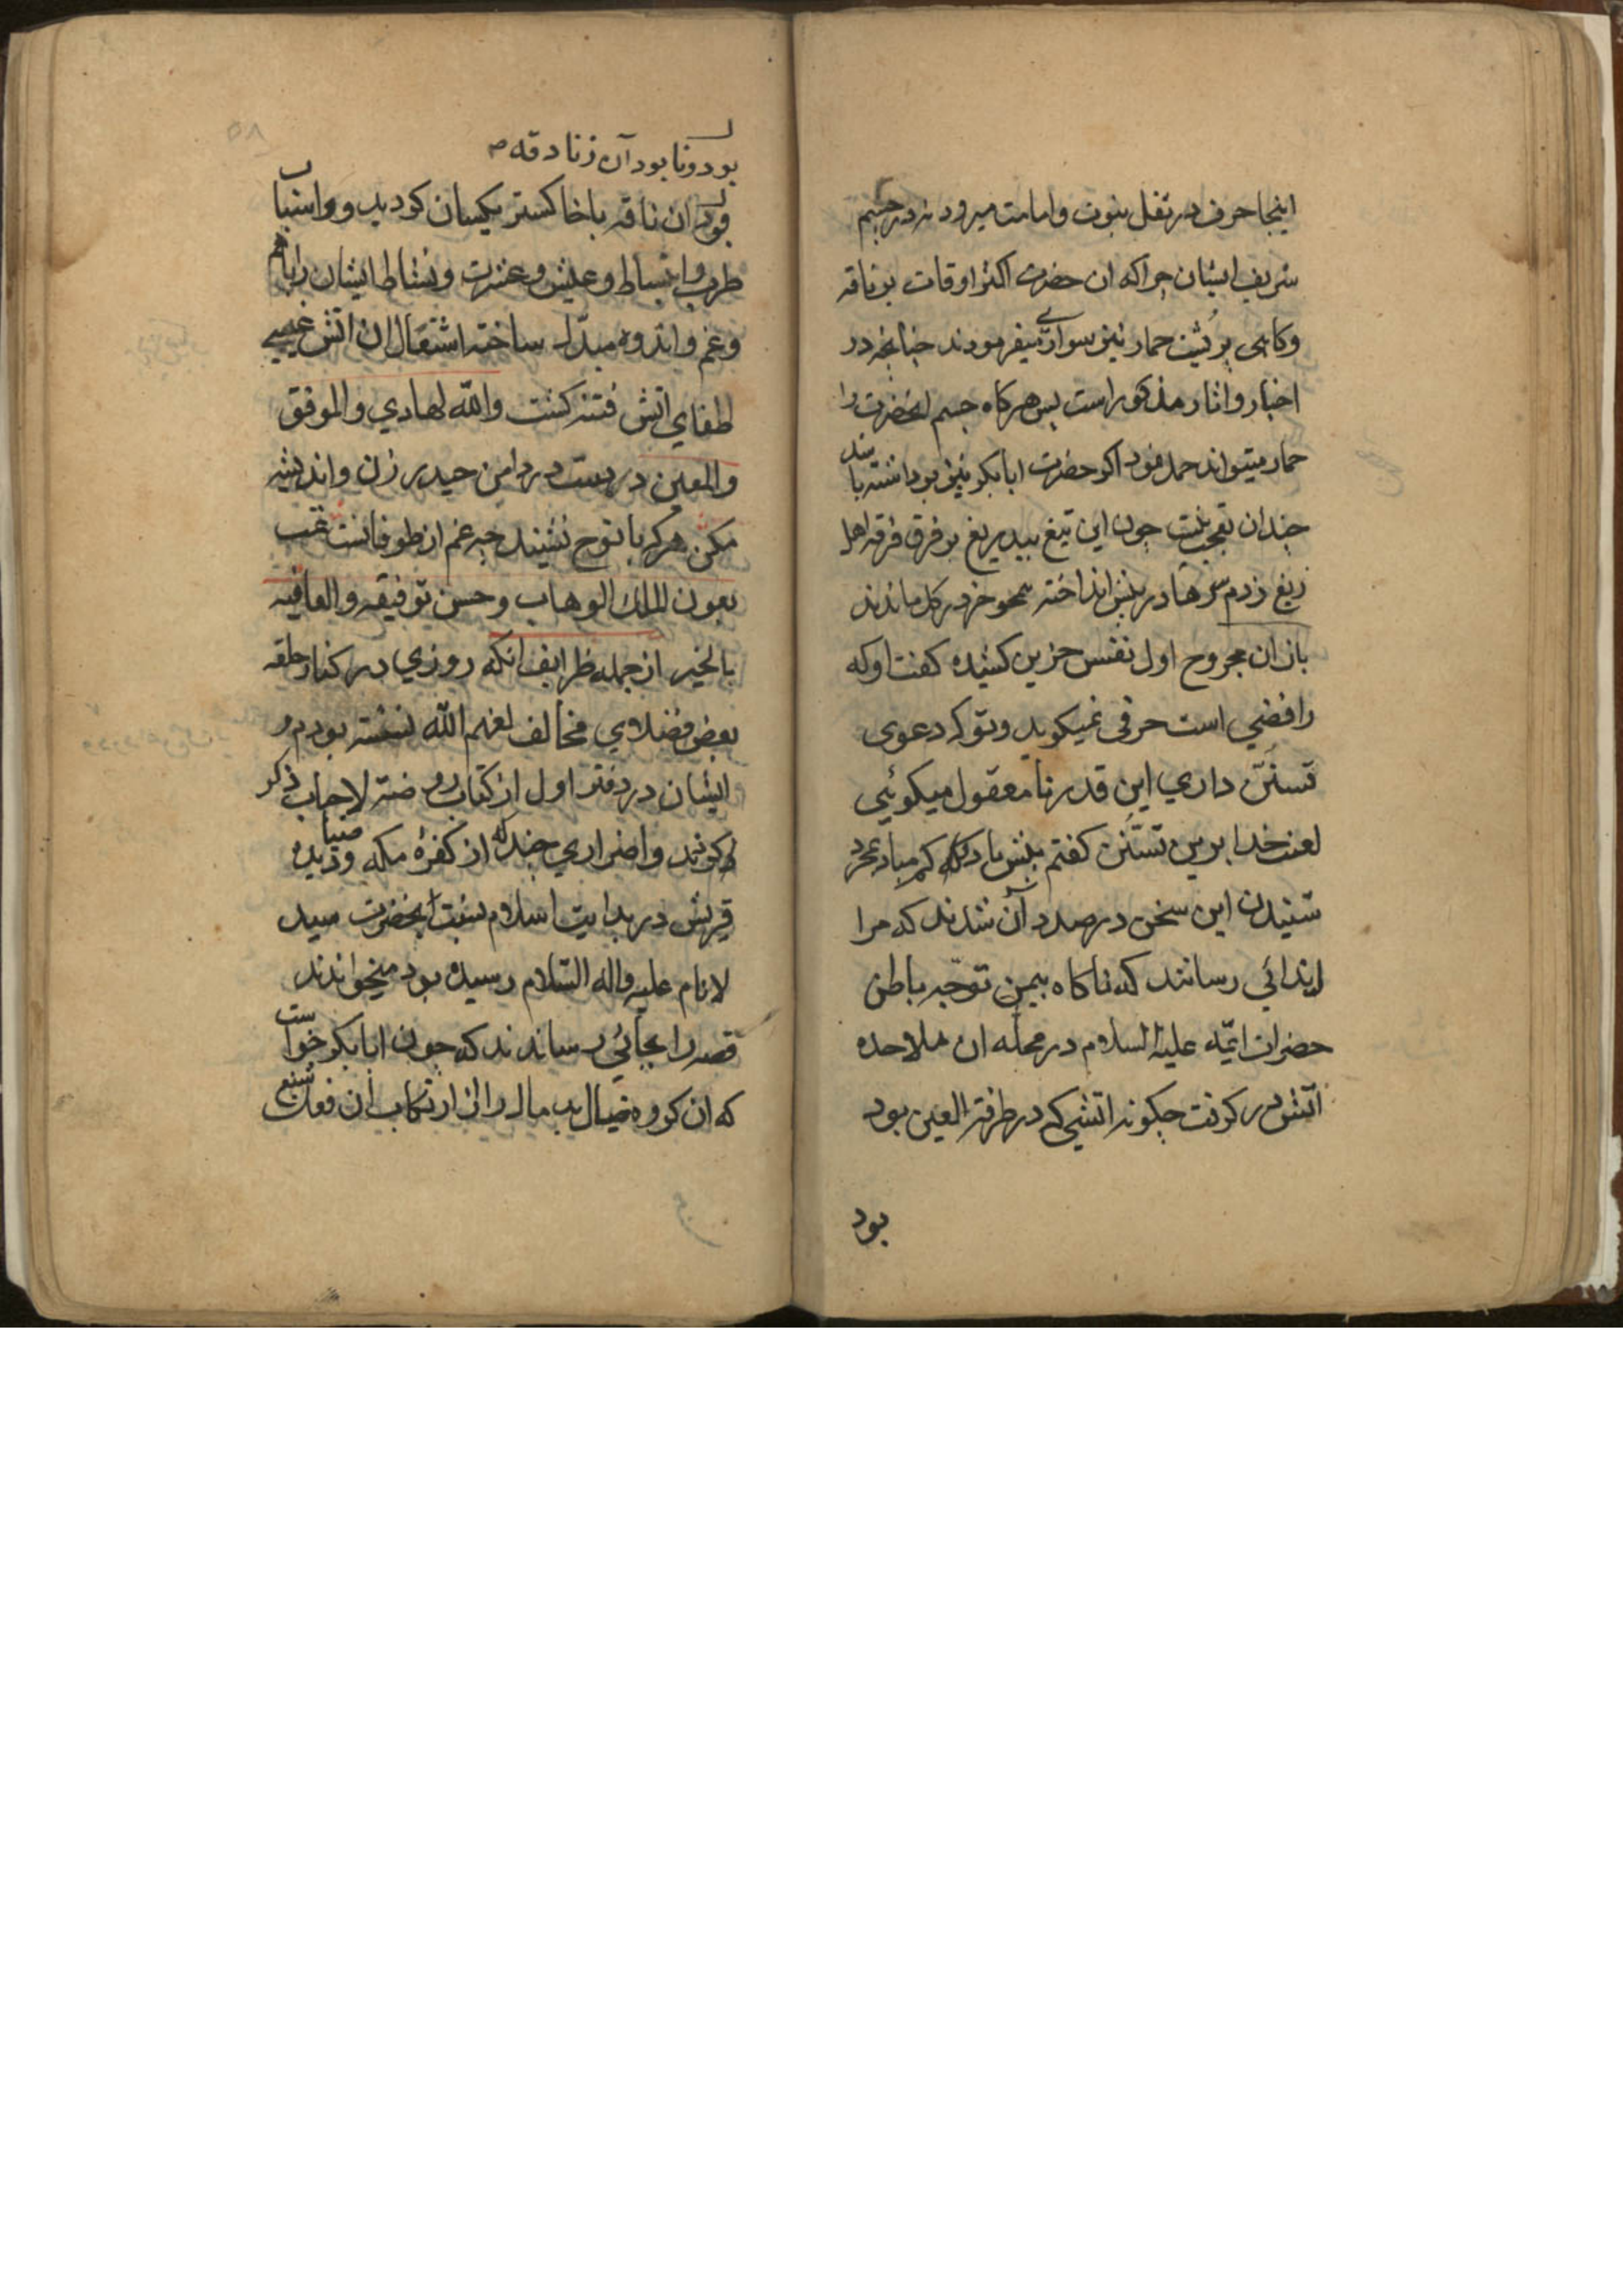 اینجا حرف در ثقل نبوت و امامت میرود نه در جسم
شریف ایشان چرا که ان حضرت اکثر اوقات بر ناقه
و کاهی بر پشت حمار نیز سواری میفرمودند چنانچه در
اخبار و اثار مذکور است پس هر کاه جسم انحضرت را
حمار میتواند حمل نمود اکر حضرت ابابکر نیز برداشته باشد
چندان تعجب نیست چون این تیغ بیدریغ بر فرق فرقه اهل
زیغ زدم سرها در پیش انداخته همچو خر در کل ماندند
باز ان مجروح اول نفس حزین کشیده کفت او که
رافضی است حرفی نمیکوید و تو که دعوی
تسنن داری این قدر نامعقول میکوئی
لعنت خدا برین تسنن کفتم بیش باد کم مباد بمجرد
شنیدن این سخن در صدد آن شدند که مرا
ایذائی رسانند که ناکاه بیمن توجه باطن
حضرات ائمه علیه السلام در محله ان ملاحده
اتش در کرفت چکونه اتشی که در طرفة العین بود
بود
۵۸
بود و نابود آن زنادقه
بود ان ناقه باخاکستر یکسان کردید و اسباب
طرب و انبساط و عیش و عشرت و نشاط ایشان را بهم
و غم و اندوه مبدل ساخته اشتعال ان اتش غیبی
اطفای اتش فتنه کشت والله الهادی والموفق
والمعین دست در دامن حیدر زن و اندیشه
مکن هر که با نوح نشیند چه غم از طوفانست تمت
بعون الملک الوهاب و حسن توفیقه والعافیه
بالخیر از جمله ظرایف انکه روزی در کنار حلقه
بعض فضلای مخالف لعنهم الله نشسته بودم و
ایشان در دفتر اول از کتاب روضة الاحباب ذکر
کزند و اضراری چند که از کفرهٔ مکه و صنادید
قریش در بدایت اسلام نسبت بانحضرت سید
الانام علیه واله السلام رسیده بود میخواندند
قصه را بجائی رساندند که چون ابابکر خواست
که ان کروه ضیال بدمال را از ارتکاب ان فعل شنیع